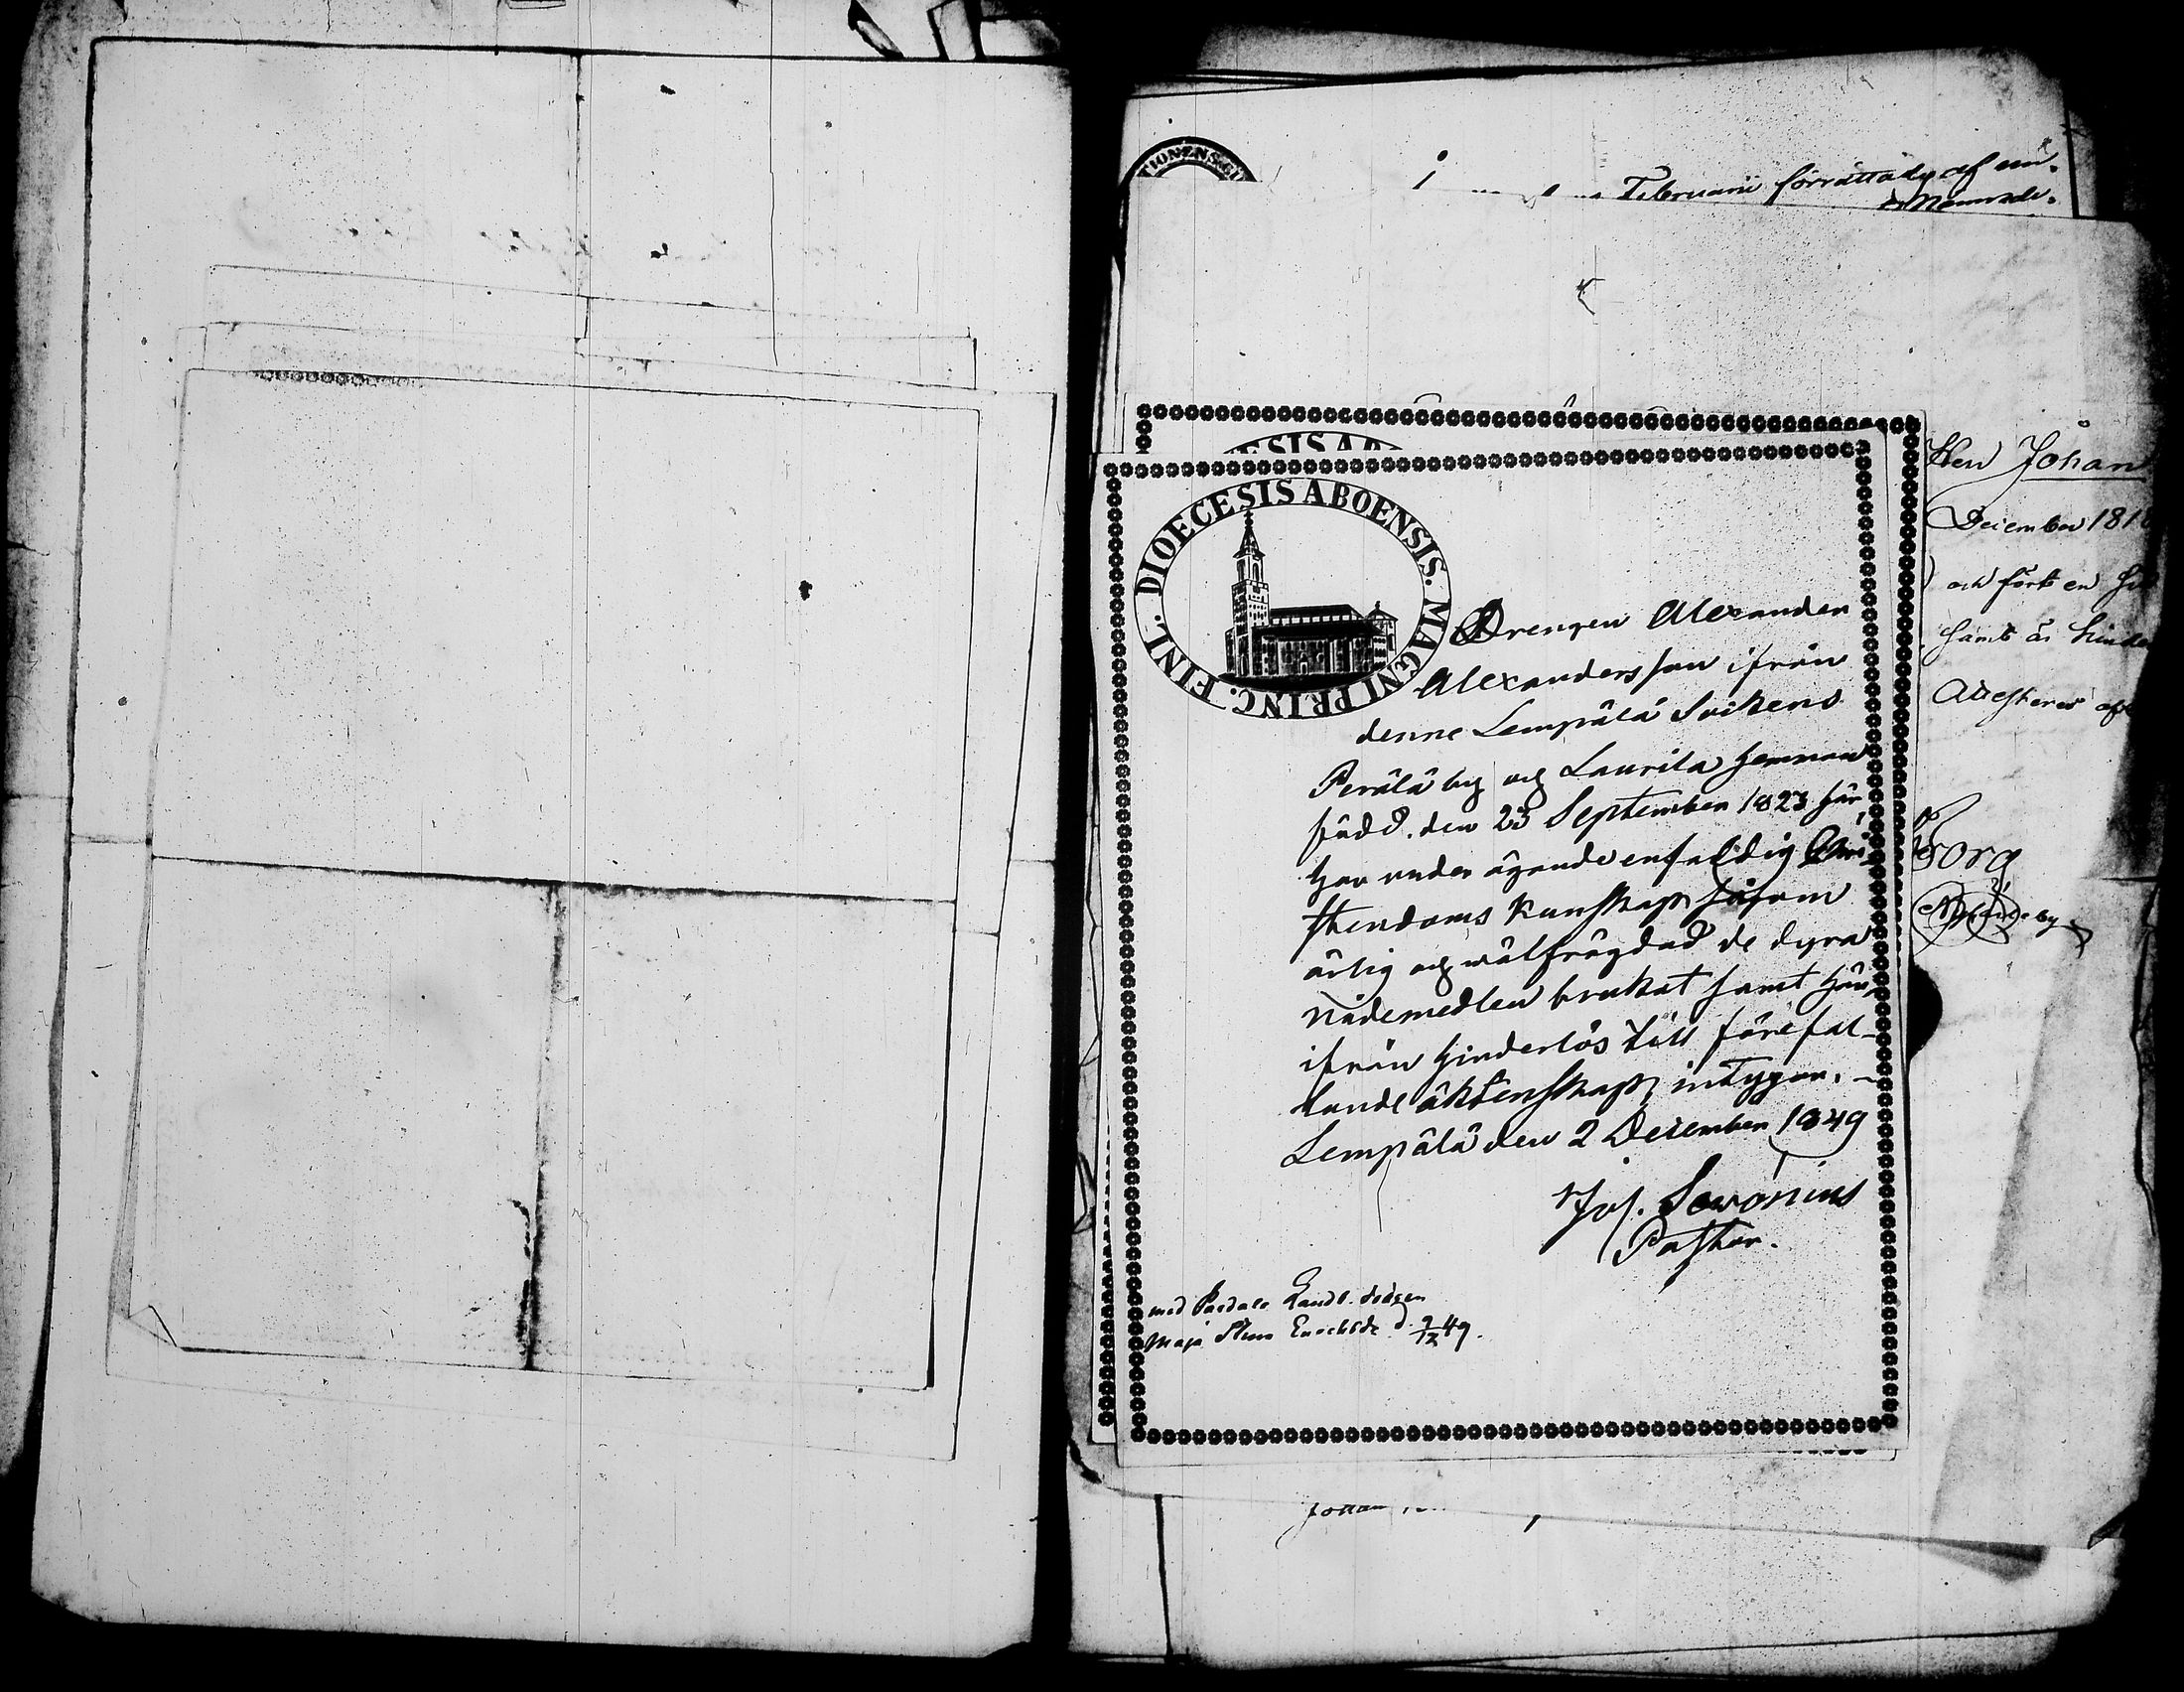 TIONENS
Februarii förrättades af
ESIS AB
DIOECESIS ABOENSIS. MAGNI PRINC. FINL.
Drengen Alexander
Alexandersson ifrån
denne Lempälä Sockens
Perälä by och Laurila hemman
född den 23 September 1823 här
har under ägande enfaldig Chri-
stendoms Kunskap såsom
ärlig och wälfrägdad de dyra
nådemedlen brukat samt här-
ifrån hinderlös till förefal-
lande äktenskap, intygar. -
Lempälä den 2 December 1849
Jos. Sevonius
Pastor.
med
Maja d. 9/12 49.
Johan
December 181
och fört en
samt är hinder
Attesteras af
Borg